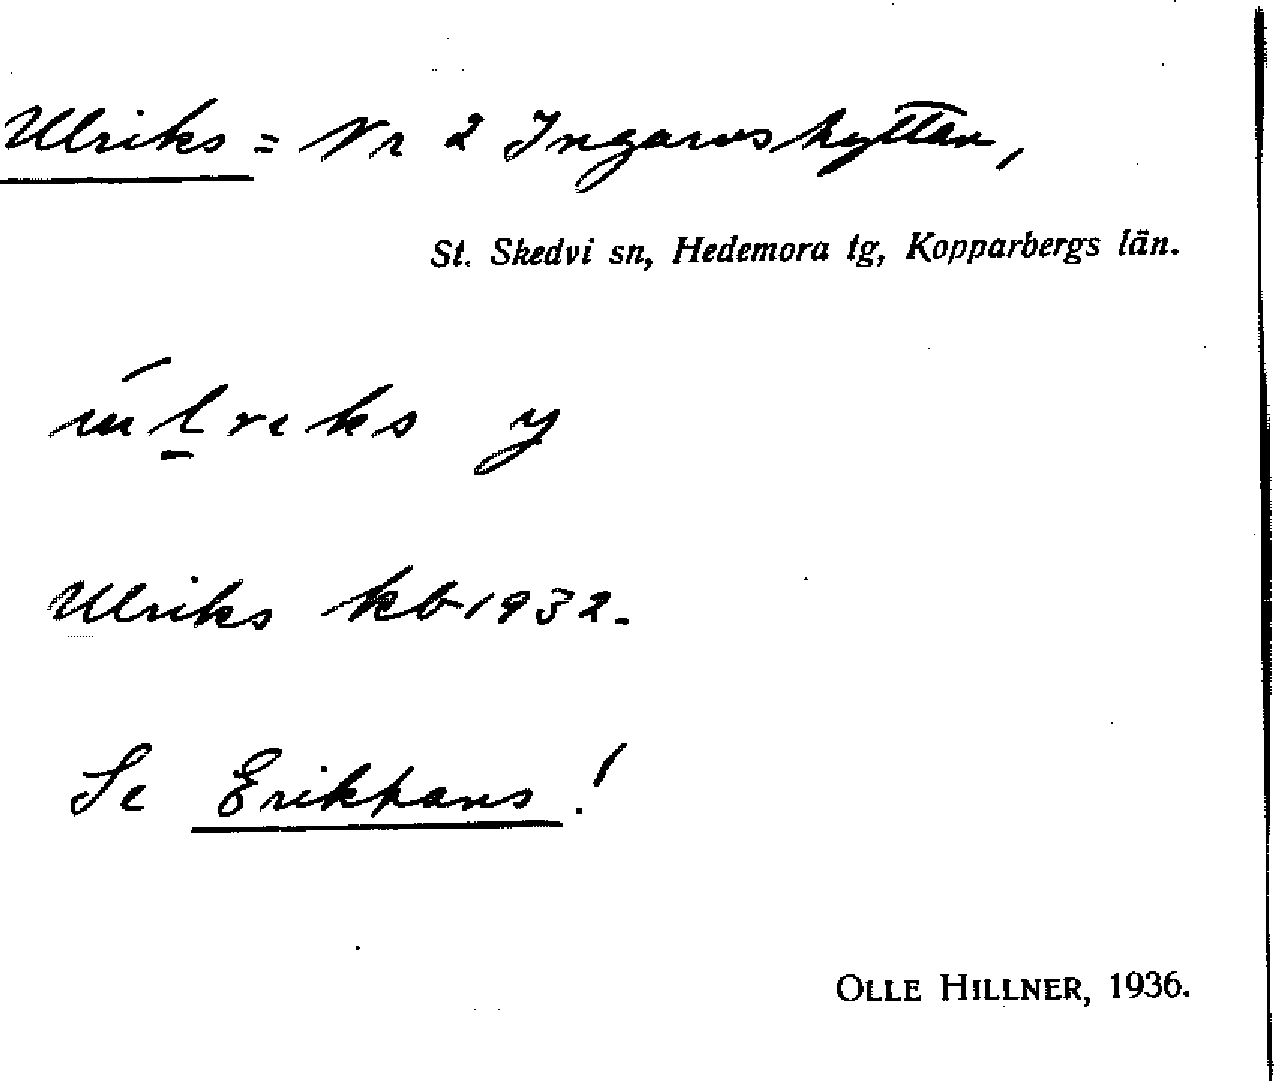 Ulriks = Nr 2 Ingarvshyttan,
St. Skedvi sn, Hedemora tg, Kopparbergs län.
y
Ulriks kb 1932.
Se Erikhans!
OLLE HILLNER, 1936.